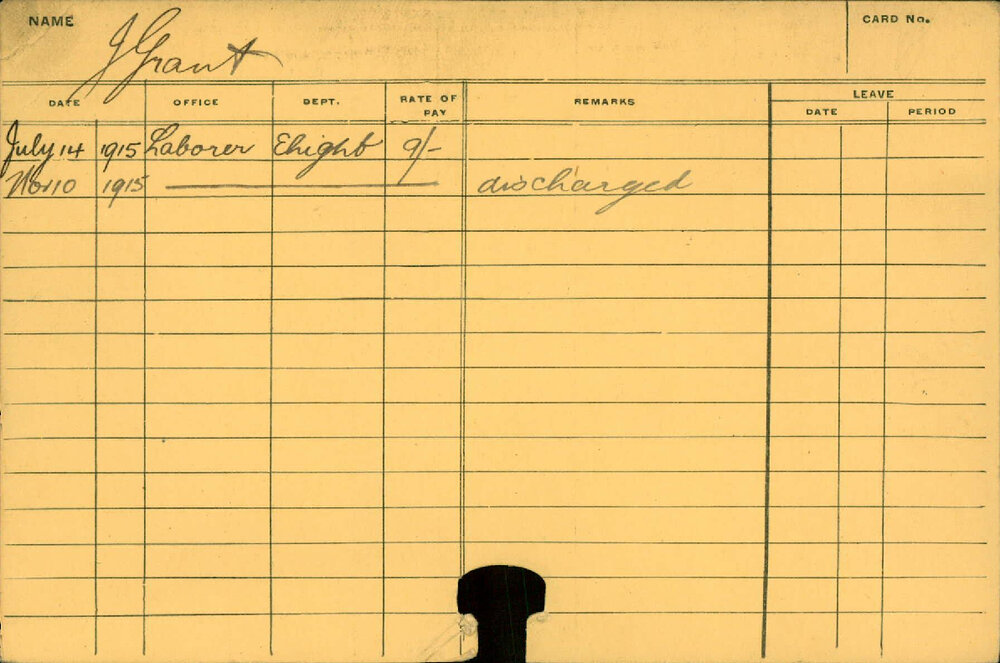 NAME J Grant CARD No.
DATE OFFICE DEPT. RATE OF PAY REMARKS LEAVE
DATE PERIOD
July 14 1915 Laborer Elught 9/-
Nov 10 1915 discharged